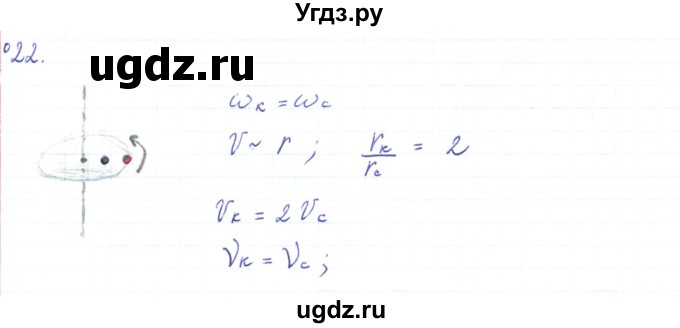 Угдз.ру
°22.
ugdz.ru
ω_к = ω_с
V ~ r ; r_к / r_с = 2
V_к = 2 V_с
ν_к = ν_с ;
ugdz.ru